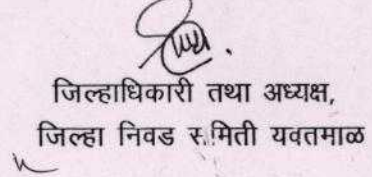 जिल्हाधिकारी तथा अध्यक्ष,
जिल्हा निवड समिती यवतमाळ